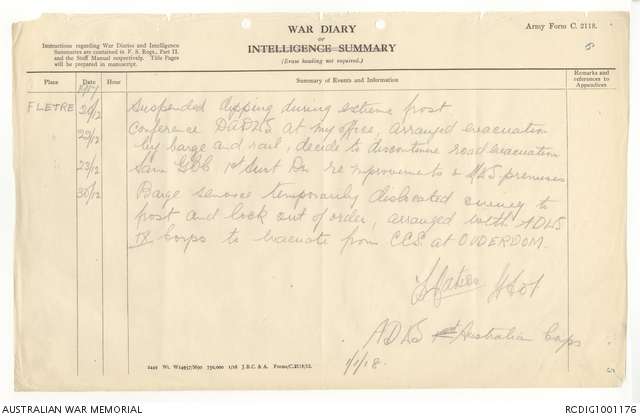 WAR DIARY
or
INTELLIGENCE SUMMARY
(Erase heading not required.)
Army Form C. 2118.
8
Instructions regarding War Diaries and Intelligence
Summaries are contained in F. S. Regs., Part II.
and the Staff Manual respectively. Title Pages
will be prepared in manuscript.
Place Date Hour Summary of Events and Information Remarks and references to Appendices
1917
FLETRE 20/12 Suspended dipping during extreme frost
22/12 Conference DADsMS at my office, arranged evacuation
by barge and rail, decide to discontinue road evacuation
23/12 Saw GOC 1st Aust Dn re improvements to premises
30/12 Barge service temporarily dislocated owing to
frost and lock out of order, arranged with
Corps to evacuate from CCS at OUDERDOM.
Australian Corps
1/1/18.
2449 Wt. W14957/M90 750,000 1/16 J.B.C. & A. Forms/C.2118/12.
AUSTRALIAN WAR MEMORIAL
RCDIG1001176